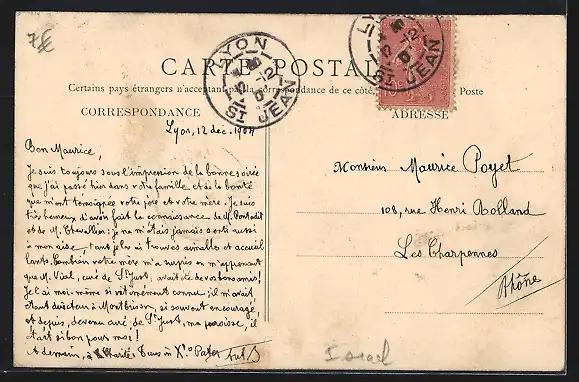 7€
LYON
12-12
ST JEAN
LYON
12-12
ST JEAN
CARTE POSTALE
Certains pays étrangers n'acceptant pas la correspondance de ce côté, Poste
CORRESPONDANCE
ADRESSE
Lyon, 12 déc. 1904
Bon Maurice,
Je suis toujours sous l'impression de la bonne soirée
que j'ai passé hier dans votre famille et de la bonté
que m'ont témoignée votre père et votre mère. Je suis
très heureux d'avoir fait la connaissance de M.
et de M. Chevallier; je ne m'étais jamais senti aussi
à mon aise, tant je les ai trouvés aimables et accueil
lants. Combien votre mère m'a surpris en m'apprenant
que M. Vial, curé de St Just, avait été de vos bons amis!
Je l'ai moi-même si intimement connu; il m'avait
étant directeur à Montbrison, si souvent encouragé
et depuis, devenu curé de St Just, ma paroisse, il
était si bon pour moi!
A demain, à Tuus in Xto Pater
Monsieur Maurice Poyet
108, rue Henri Rolland
Les Charpennes
Rhône
Israel